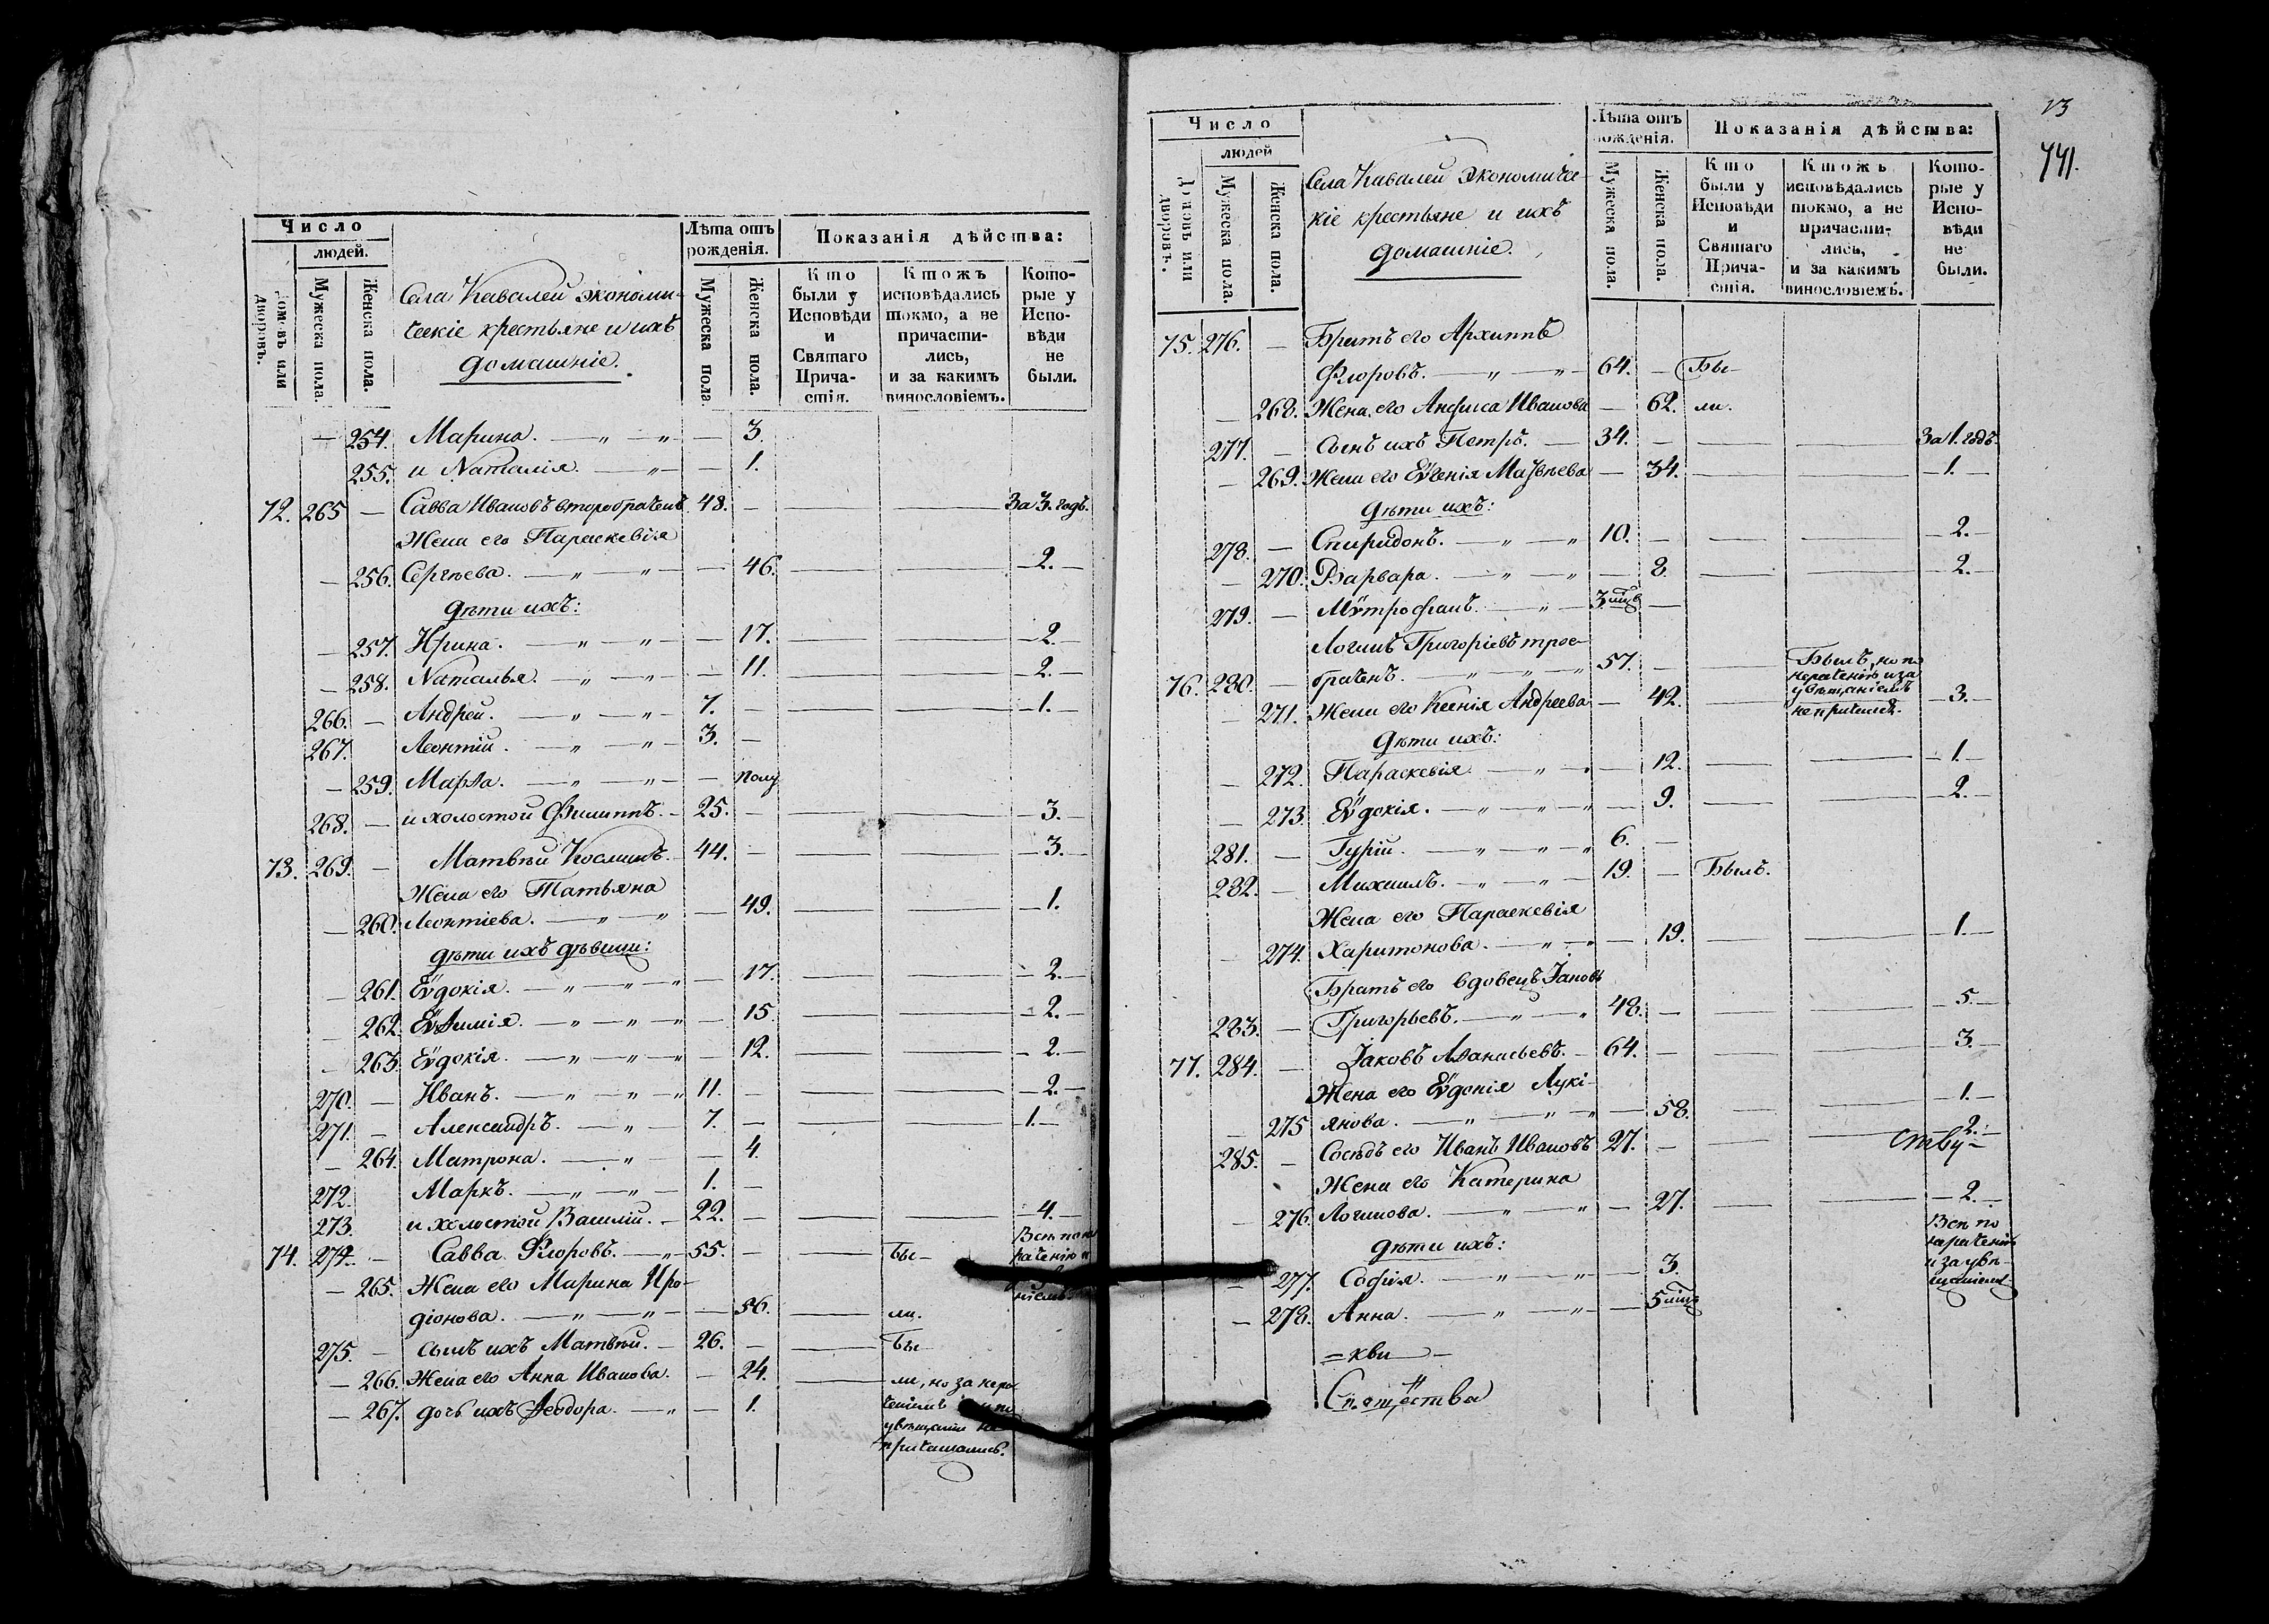 Число
людей.
Домовъ или дворовъ.
Мужеска пола.
Женска пола.
Села Кавалей экономи-
ческіе крестьяне и ихъ
домашніе.
Лѣта отъ
рожденія.
Мужеска пола.
Женска пола.
Показанія дѣйства:
Кто
были у
Исповѣди
и
Святаго
Прича-
стія.
Ктожъ
исповѣдались
токмо, а не
причасти-
лись,
и за какимъ
винословіемъ.
Кото-
рые у
Испо-
вѣди
не
были.
— 254. Марина. — „ — „ — — 3.
255. и Наталія. — „ — — 1.
72. 265 — Савва Ивановъ второбраченъ 48. — — За 3. годъ.
Жена его Параскевія
— 256. Сергѣева. — „ — „ — — 46. — — 2. —
дѣти ихъ:
— 257. Ирина. — „ — „ — — 17. — — 2. —
— 258. Наталья. — „ — „ — — 11. — — 2. —
266. — Андрей. — „ — „ — 7. — — — 1. —
267. Леонтій. — „ — „ — 3. —
— 259. Марѳа. — „ — „ — — полу
268. — и холостой Филиппъ. — 25. — — — 3. —
73. 269. — Матвѣй Косминъ. — 44. — — — 3. —
Жена его Татьяна
— 260. Леонтіева. — „ — „ — 49. — — 1.
дѣти ихъ дѣвицы:
— 261. Еѵдокія. — „ — „ — „ — 17. — — 2. —
— 262. Еѵѳимія. — „ — „ — „ — 15. — — 2. —
— 263. Еѵдокія. — „ — „ — „ — 12. — — 2. —
270. — Иванъ. — „ — „ — „ 11. — — — 2. —
271. — Александръ. — „ — 7. — — — 1. —
— 264. Матрона. — „ — — 4.
272. Маркъ. — „ — „ — 1. —
273. и холостой Василій. — 22. — — — 4. —
74. 274. — Савва Флоровъ. — „ — 55. — — Бы-
— 265. Жена его Марина Иро-
діонова. — „ — „ — — 56. — ли.
275. — сынъ ихъ Матвѣй. — 26. — — Бы
— 266. Жена его Анна Иванова. — 24. — ли, но за нера-
— 267. дочь ихъ Ѳеодора. — „ — — 1. ченіемъ
увѣщаніи не
причащались.
23
741.
Число
людей
Домовъ или дворовъ.
Мужеска пола.
Женска пола.
Села Кавалей экономиче-
скіе крестьяне и ихъ
домашніе.
Лѣта отъ
рожденія.
Мужеска пола.
Женска пола.
Показанія дѣйства:
Кто
были у
Исповѣди
и
Святаго
Прича-
стія.
Ктожъ
исповѣдались
токмо, а не
причасти-
лись,
и за какимъ
винословіемъ.
Кото-
рые у
Испо-
вѣди
не
были.
75. 276. — Братъ его Архиппъ
Флоровъ. — „ — „ — 64. — Бы-
— 268. Жена его Анфиса Иванова — 62. ли.
277. — сынъ ихъ Петръ. — 34. — — За 1. годъ.
— 269. Жена его Еѵгенія Матвѣева — 34. — — 1. —
дѣти ихъ:
278. — Спиридонъ. — „ — „ 10. — — — 2. —
— 270. Варвара. — „ — „ — 8. — — 2. —
279. — Мѵтрофанъ. — „ — 3 —
Логинъ Григоріевъ трое-
76. 280. — браченъ. — „ — „ — „ 57. — — Былъ, но по
нераченію и за
увѣщаніемъ
не причащ.
— 271. Жена его Ксенія Андреева — 42. — 3. —
дѣти ихъ:
— 272. Параскевія. — „ — — 12. — — 1. —
— 273. Еѵдокія. — „ — „ — „ — 9. — — 2. —
281. — Гурій. — „ — „ — „ 6. —
282. — Михаилъ. — „ — „ — 19. — Былъ.
Жена его Параскевія
— 274. Харитонова. — „ — — 19. — — 1. —
Братъ его вдовецъ Іаковъ
283. — Григорьевъ. — „ — „ 48. — — 5. —
77. 284. — Іаковъ Аѳанасьевъ. — 64. — — 3. —
Жена его Еѵдокія Лукі-
— 275 янова. — „ — „ — „ — 58. — — 1. —
285. — Сосѣдъ его Иванъ Ивановъ 27. — — — 2. —
ству-
Жена его Катерина
— 276. Логинова. — „ — „ — 27. — — 2. —
дѣти ихъ:
Всѣ по
нераченію
и за увѣ-
щаніемъ
— 277. Софія. — „ — „ — — 3.
— 278. Анна. — „ — „ — — 5
=кви —